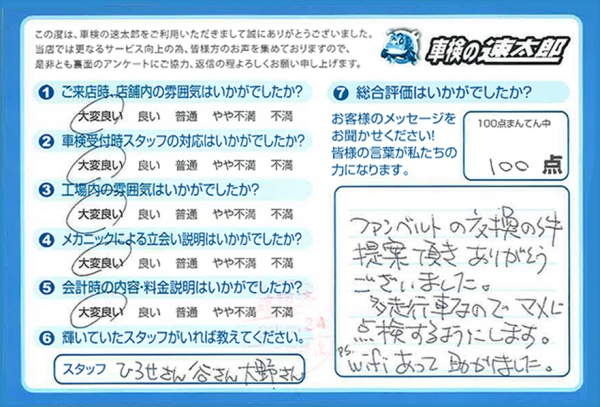 この度は、車検の速太郎をご利用いただきまして誠にありがとうございました。
当店では更なるサービス向上の為、皆様方のお声を集めておりますので、
是非とも裏面のアンケートにご協力、返信の程よろしくお願い申し上げます。
車検の速太郎
1 ご来店時、店舗内の雰囲気はいかがでしたか?
大変良い 良い 普通 やや不満 不満
2 車検受付時スタッフの対応はいかがでしたか?
大変良い 良い 普通 やや不満 不満
3 工場内の雰囲気はいかがでしたか?
大変良い 良い 普通 やや不満 不満
4 メカニックによる立会い説明はいかがでしたか?
大変良い 良い 普通 やや不満 不満
5 会計時の内容・料金説明はいかがでしたか?
大変良い 良い 普通 やや不満 不満
6 輝いていたスタッフがいれば教えてください。
スタッフ ひろせさん 谷さん 大野さん
7 総合評価はいかがでしたか?
お客様のメッセージを
お聞かせください!
皆様の言葉が私たちの
力になります。
100点まんてん中
100 点
ファンベルトの交換の件
提案頂きありがとう
ございました。
多走行車なのでマメに
点検するようにします。
PS. wifiあって助かりました。